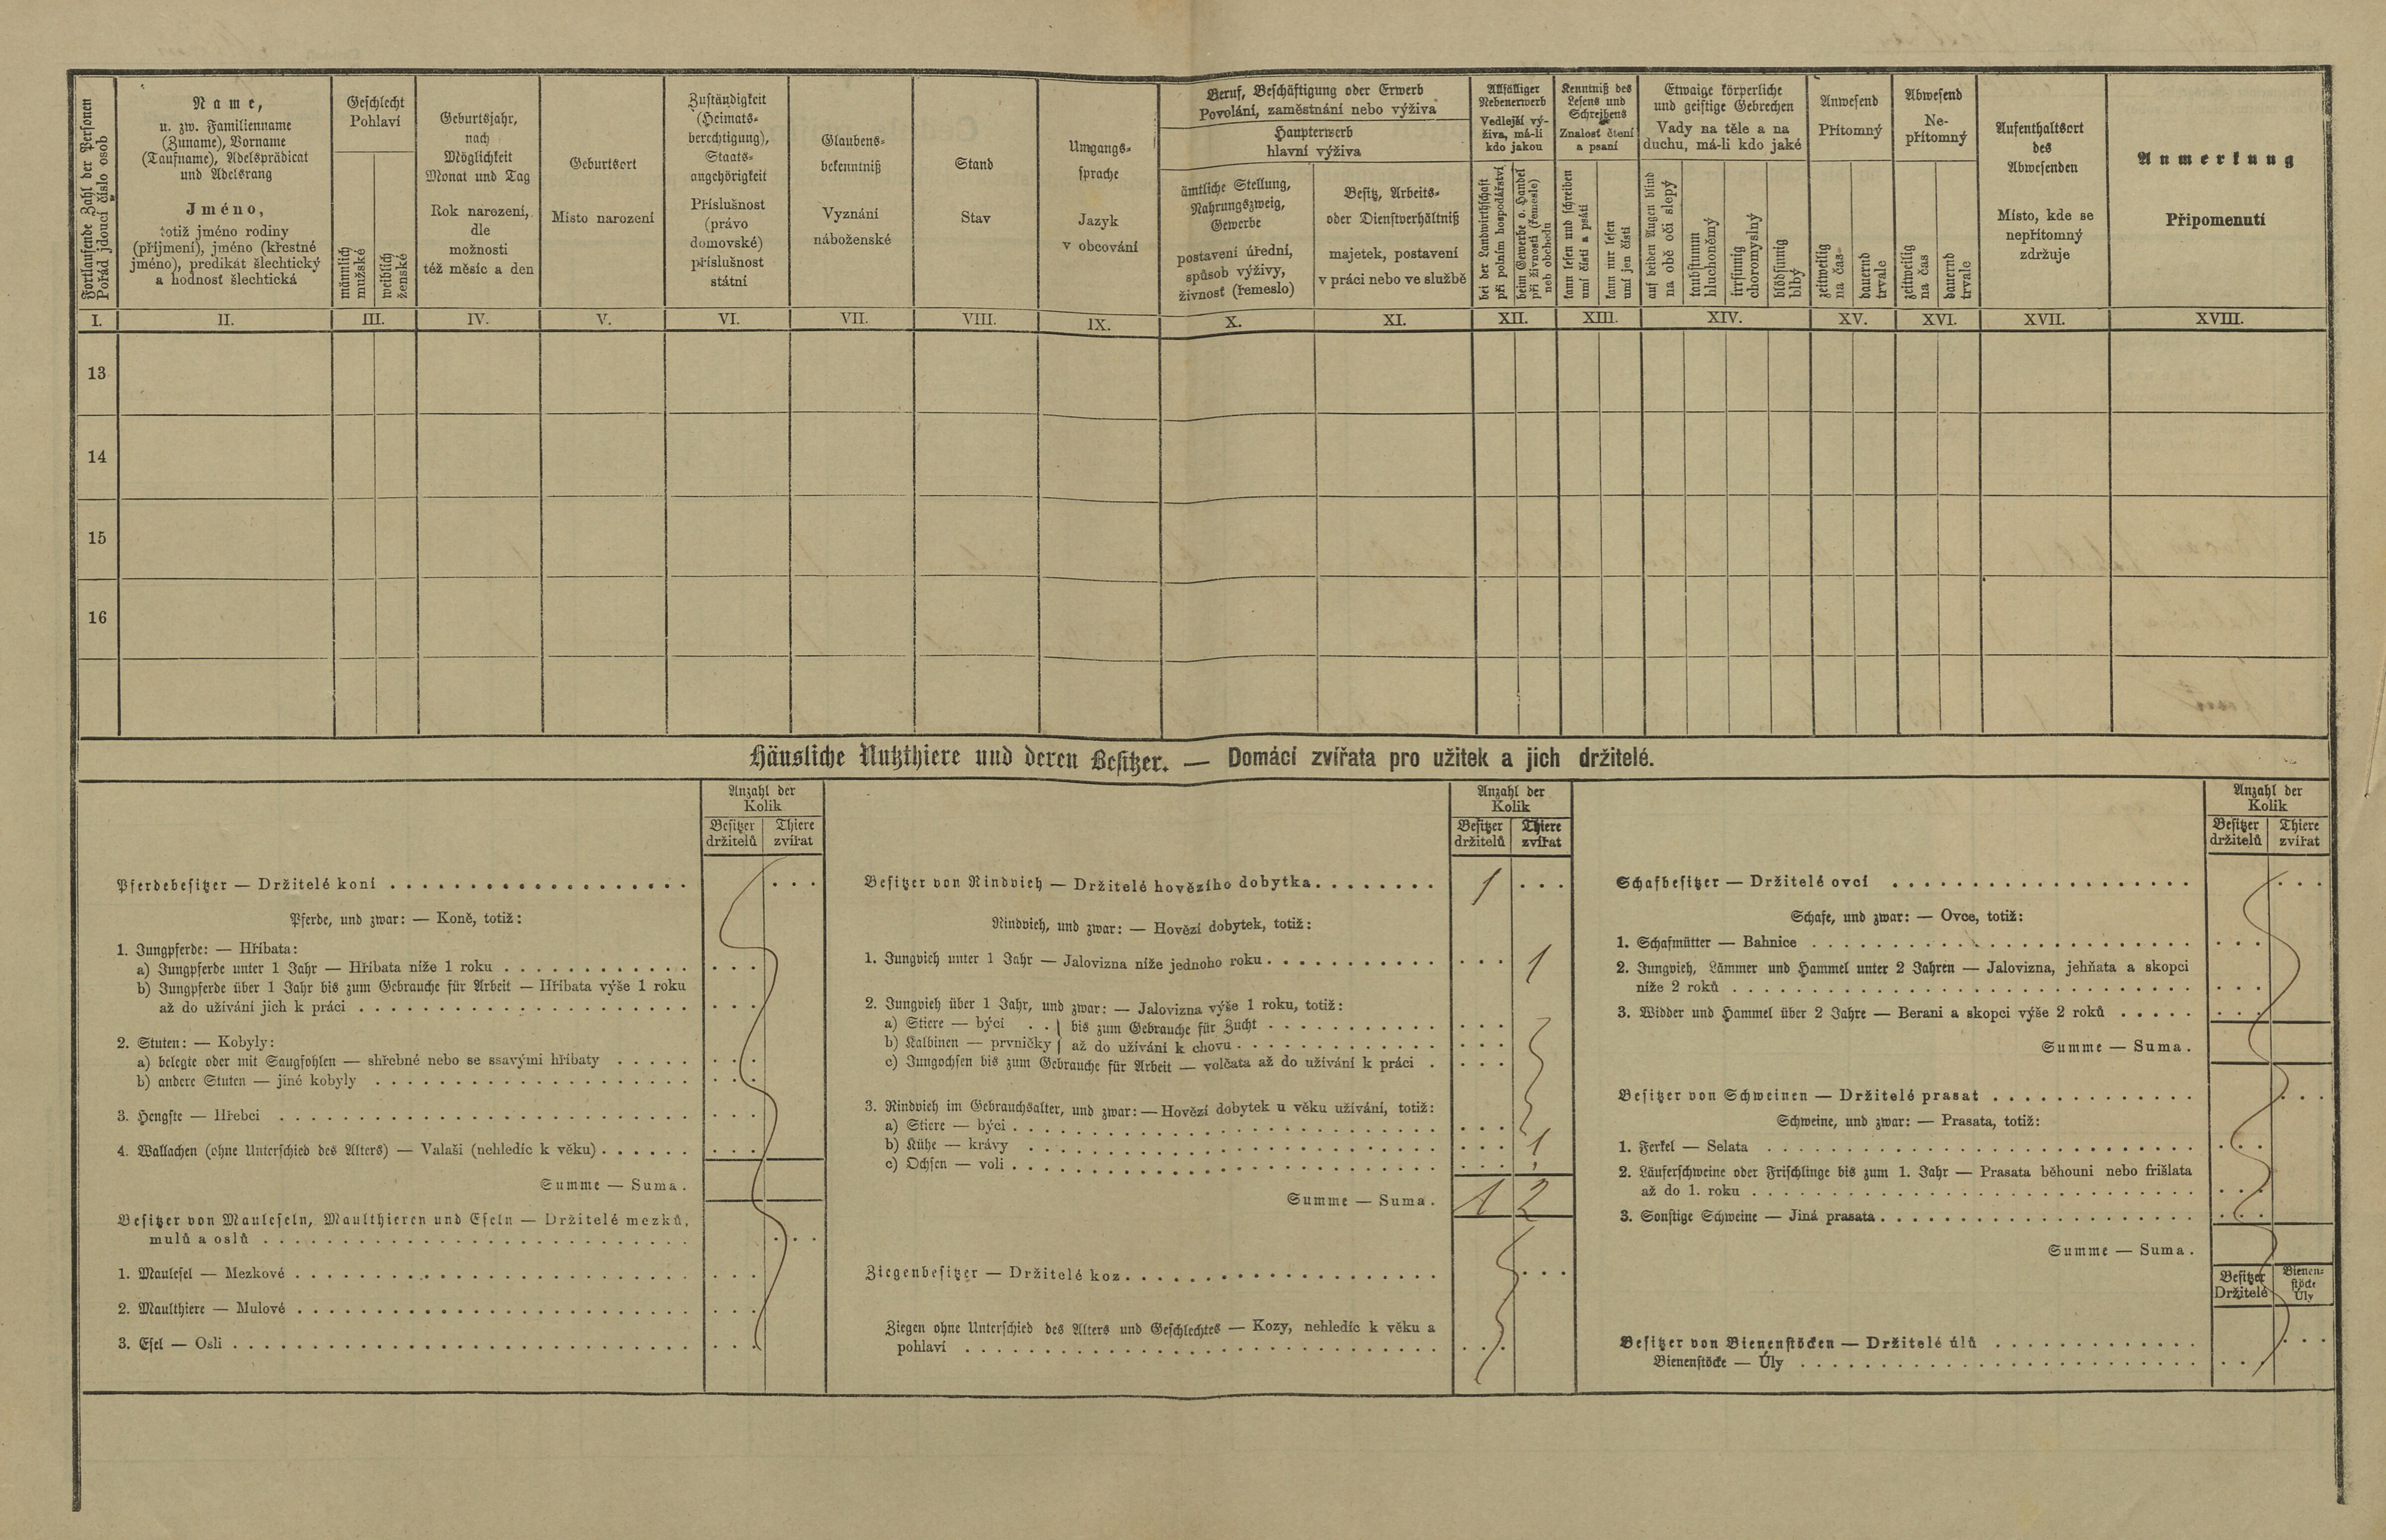 Fortlaufende Zahl der Personen
Pořád jdoucí číslo osob
Name,
u. zw. Familienname
(Zuname), Vorname
(Taufname), Adelsprädicat
und Adelsrang
Jméno,
totiž jméno rodiny
(příjmení), jméno (křestné
jméno), predikát šlechtický
a hodnost šlechtická
Geschlecht
Pohlaví
männlich
mužské
weiblich
ženské
Geburtsjahr,
nach
Möglichkeit
Monat und Tag
Rok narození,
dle
možnosti
též měsíc a den
Geburtsort
Místo narození
Zuständigkeit
(Heimats-
berechtigung),
Staats-
angehörigkeit
Příslušnost
(právo
domovské)
příslušnost
státní
Glaubens-
bekenntniß
Vyznání
náboženské
Stand
Stav
Umgangs-
sprache
Jazyk
v obcování
Beruf, Beschäftigung oder Erwerb
Povolání, zaměstnání nebo výživa
Haupterwerb
hlavní výživa
ämtliche Stellung,
Nahrungszweig,
Gewerbe
postavení úřední,
spůsob výživy,
živnosť (řemeslo)
Besitz, Arbeits-
oder Dienstverhältniß
majetek, postavení
v práci nebo ve službě
Allfälliger
Nebenerwerb
Vedlejší vý-
živa, má-li
kdo jakou
bei der Landwirthschaft
při polním hospodářství
beim Gewerbe o. Handel
při živnosti (řemesle)
neb obchodu
Kenntniß des
Lesens und
Schreibens
Znalost čtení
a psaní
kann lesen und schreiben
umí čísti a psáti
kann nur lesen
umí jen čísti
Etwaige körperliche
und geistige Gebrechen
Vady na těle a na
duchu, má-li kdo jaké
auf beiden Augen blind
na obě oči slepý
taubstumm
hluchoněmý
irrsinnig
choromyslný
blödsinnig
blbý
Anwesend
Přítomný
zeitweilig
na čas
dauernd
trvale
Abwesend
Ne-
přítomný
zeitweilig
na čas
dauernd
trvale
Aufenthaltsort
des
Abwesenden
Místo, kde se
nepřítomný
zdržuje
Anmerkung
Připomenutí
I. II. III. IV. V. VI. VII. VIII. IX. X. XI. XII. XIII. XIV. XV. XVI. XVII. XVIII.
13
14
15
16
Häusliche Nutzthiere und deren Besitzer. — Domácí zvířata pro užitek a jich držitelé.
Anzahl der
Kolik
Besitzer
držitelů
Thiere
zvířat
Pferdebesitzer — Držitelé koní
Pferde, und zwar: — Koně, totiž:
1. Jungpferde: — Hříbata:
a) Jungpferde unter 1 Jahr — Hříbata níže 1 roku
b) Jungpferde über 1 Jahr bis zum Gebrauche für Arbeit — Hříbata výše 1 roku
až do užívání jich k práci
2. Stuten: — Kobyly:
a) belegte oder mit Saugfohlen — shřebné nebo se ssavými hříbaty
b) andere Stuten — jiné kobyly
3. Hengste — Hřebci
4. Wallachen (ohne Unterschied des Alters) — Valaši (nehledíc k věku)
Summe — Suma.
Besitzer von Mauleseln, Maulthieren und Eseln — Držitelé mezků,
mulů a oslů
1. Maulesel — Mezkové
2. Maulthiere — Mulové
3. Esel — Osli
Anzahl der
Kolik
Besitzer
držitelů
Thiere
zvířat
Besitzer von Rindvieh — Držitelé hovězího dobytka 1
Rindvieh, und zwar: — Hovězí dobytek, totiž:
1. Jungvieh unter 1 Jahr — Jalovizna níže jednoho roku 1
2. Jungvieh über 1 Jahr, und zwar: — Jalovizna výše 1 roku, totiž:
a) Stiere — býci } bis zum Gebrauche für Zucht
b) Kalbinen — prvničky } až do užívání k chovu
c) Jungochsen bis zum Gebrauche für Arbeit — volčata až do užívání k práci
3. Rindvieh im Gebrauchsalter, und zwar: — Hovězí dobytek u věku užívání, totiž:
a) Stiere — býci
b) Kühe — krávy 1
c) Ochsen — voli
Summe — Suma. 1 2
Ziegenbesitzer — Držitelé koz
Ziegen ohne Unterschied des Alters und Geschlechtes — Kozy, nehledíc k věku a
pohlaví
Anzahl der
Kolik
Besitzer
držitelů
Thiere
zvířat
Schafbesitzer — Držitelé ovcí
Schafe, und zwar: — Ovce, totiž:
1. Schafmütter — Bahnice
2. Jungvieh, Lämmer und Hammel unter 2 Jahren — Jalovizna, jehňata a skopci
níže 2 roků
3. Widder und Hammel über 2 Jahre — Berani a skopci výše 2 roků
Summe — Suma.
Besitzer von Schweinen — Držitelé prasat
Schweine, und zwar: — Prasata, totiž:
1. Ferkel — Selata
2. Läuferschweine oder Frischlinge bis zum 1. Jahr — Prasata běhouni nebo frišlata
až do 1. roku
3. Sonstige Schweine — Jiná prasata
Summe — Suma.
Besitzer
Držitelé
Bienen-
stöcke
Úly
Besitzer von Bienenstöcken — Držitelé úlů
Bienenstöcke — Úly